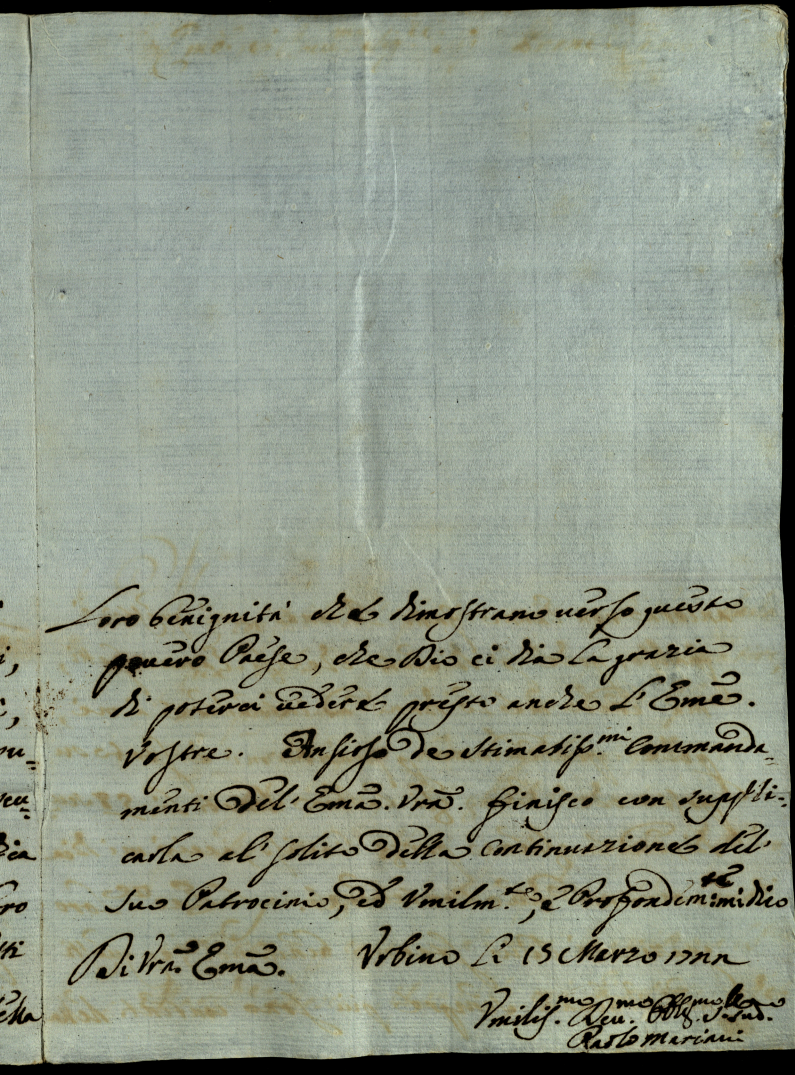 Loro benignità che dimostrano verso questo
povero Paese, che Dio ci dia la grazia
di poterci vedere presto anche l'Emē.
Vostre. Ansioso de stimatiss.mi Commanda=
menti Del' Emā. Vrā. finisco con suppli=
carla al' solito Della Continuazione del
suo Patrocinio, ed Vmilm.te, e Profondem.te mi dico
Di Vrā. Emā. Vrbino li 15 Marzo
Vmilis.mo Deu.mo Obbl.mo
Paolo Mariani